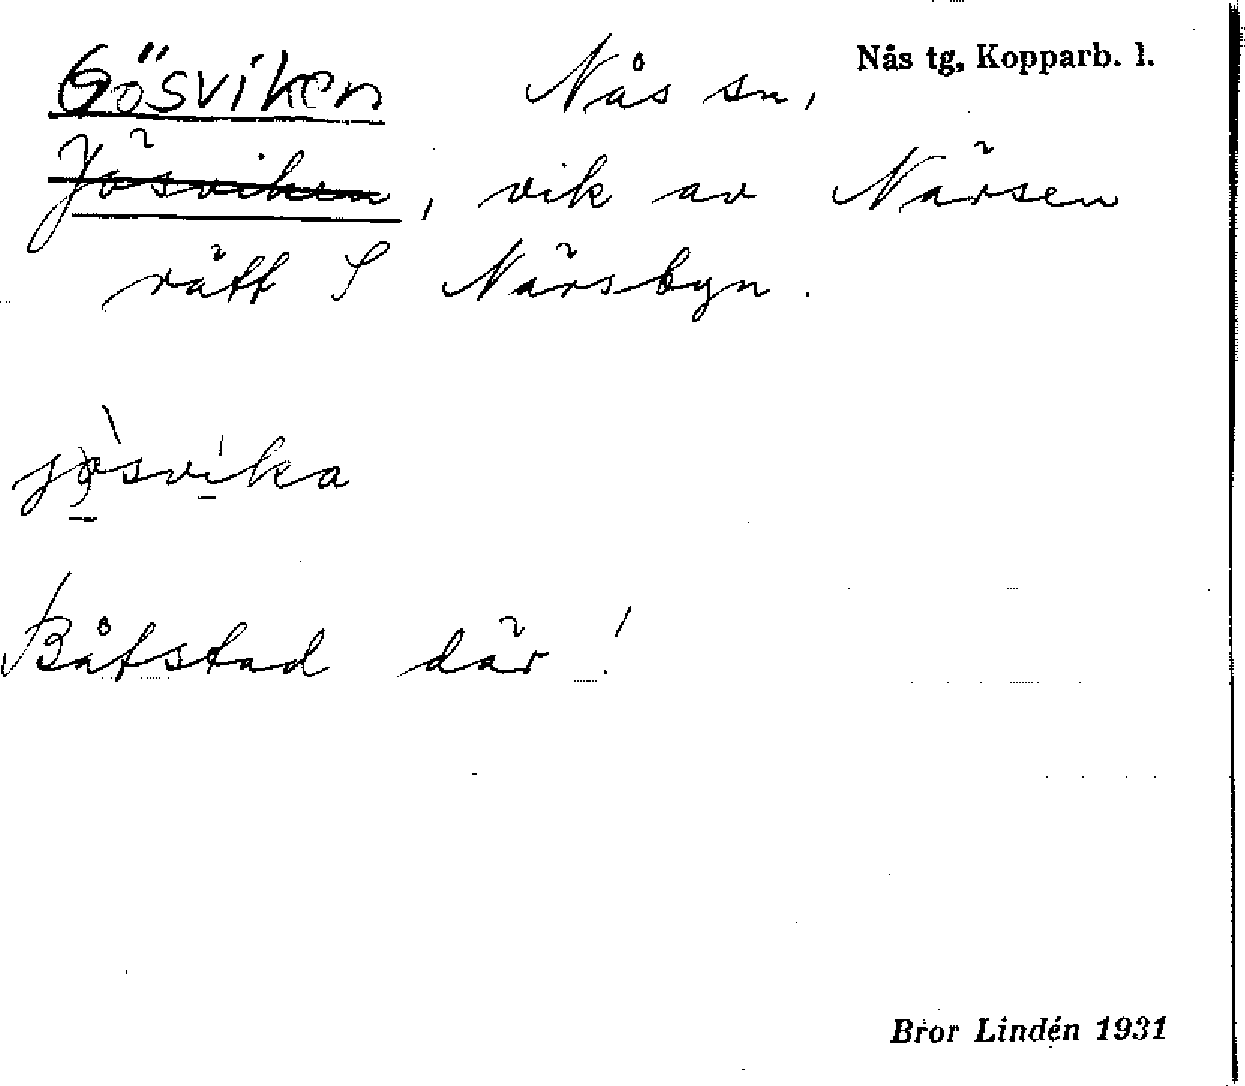 Gösviken Nås sn, Nås tg, Kopparb. l.
Jösviken, vik av Närsen
rätt S Närsbyn.
jösvika
Båtstad där!
Bror Lindén 1931